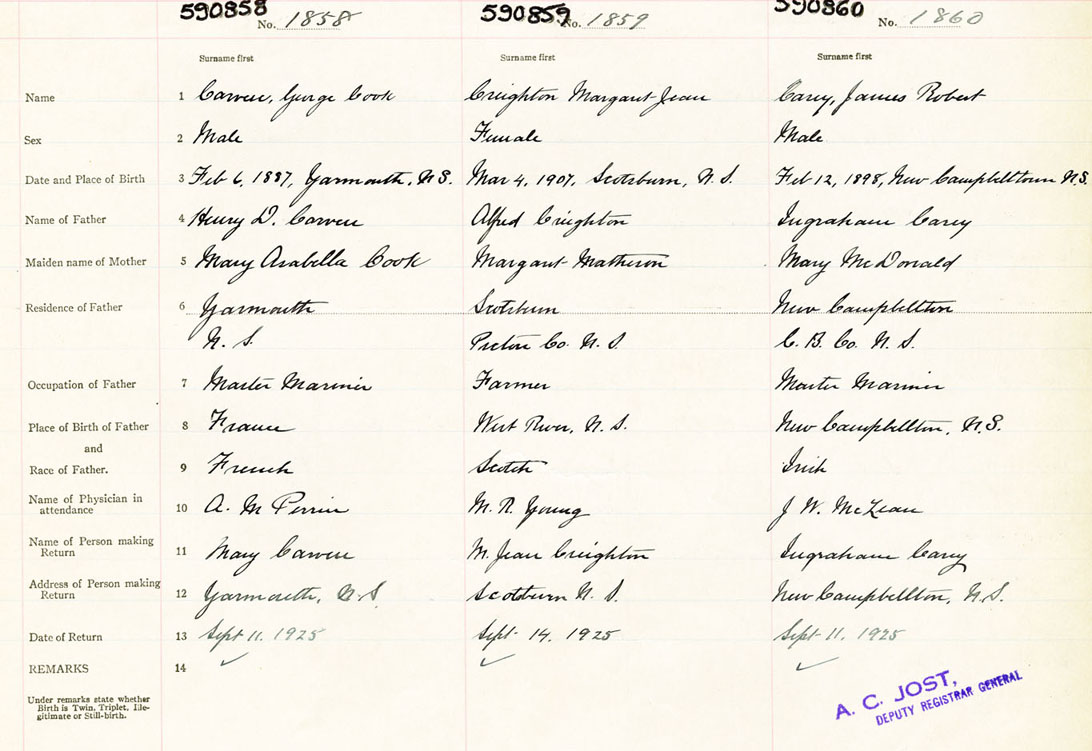 590858 No. 1858 590859 No. 1859 590860 No. 1860
Surname first Surname first Surname first
Name 1 Carven, George Cook Creighton Margaret Jean Carey, James Robert
Sex 2 Male Female Male
Date and Place of Birth 3 Feb 6, 1887, Yarmouth, N.S. Mar 4, 1907, Scotsburn, N.S. Feb 12, 1898, New Campbelltown N.S.
Name of Father 4 Henry D. Carven Alfred Creighton Ingraham Carey
Maiden name of Mother 5 Mary Arabella Cook Margaret Matheson Mary McDonald
Residence of Father 6 Yarmouth Scotsburn New Campbellton
N. S. Pictou Co. N. S. C. B. Co. N. S.
Occupation of Father 7 Master Mariner Farmer Master Mariner
Place of Birth of Father 8 France West River, N. S. New Campbellton, N.S.
and
Race of Father. 9 French Scotch Irish
Name of Physician in
attendance 10 A. M Perrin M. R. Young J W. McLean
Name of Person making
Return 11 Mary Carven M. Jean Creighton Ingraham Carey
Address of Person making
Return 12 Yarmouth, N.S. Scotsburn N. S. New Campbellton, N.S.
Date of Return 13 Sept 11. 1925 Sept 14. 1925 Sept 11. 1925
REMARKS 14
Under remarks state whether
Birth is Twin, Triplet, Ille-
gitimate or Still-birth.
A. C. JOST,
DEPUTY REGISTRAR GENERAL